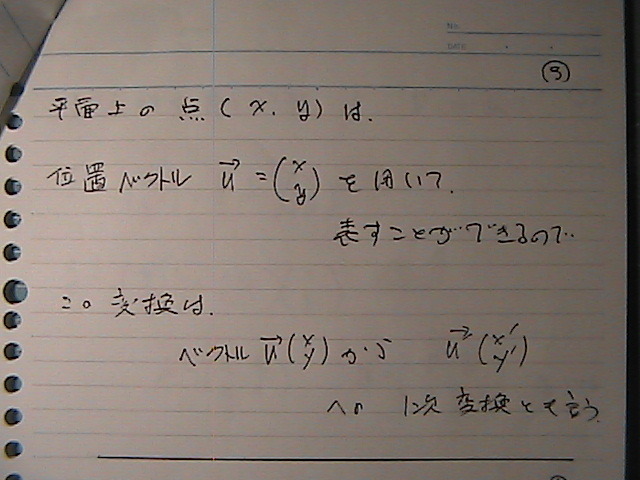 No.
DATE
⑨
平面上の点(x, y)は.
位置ベクトル u→ = (x y) を用いて.
表すことができるので.
この変換は.
ベクトル u→ (x y) から u→ (x' y')
への 1次変換とも言う.